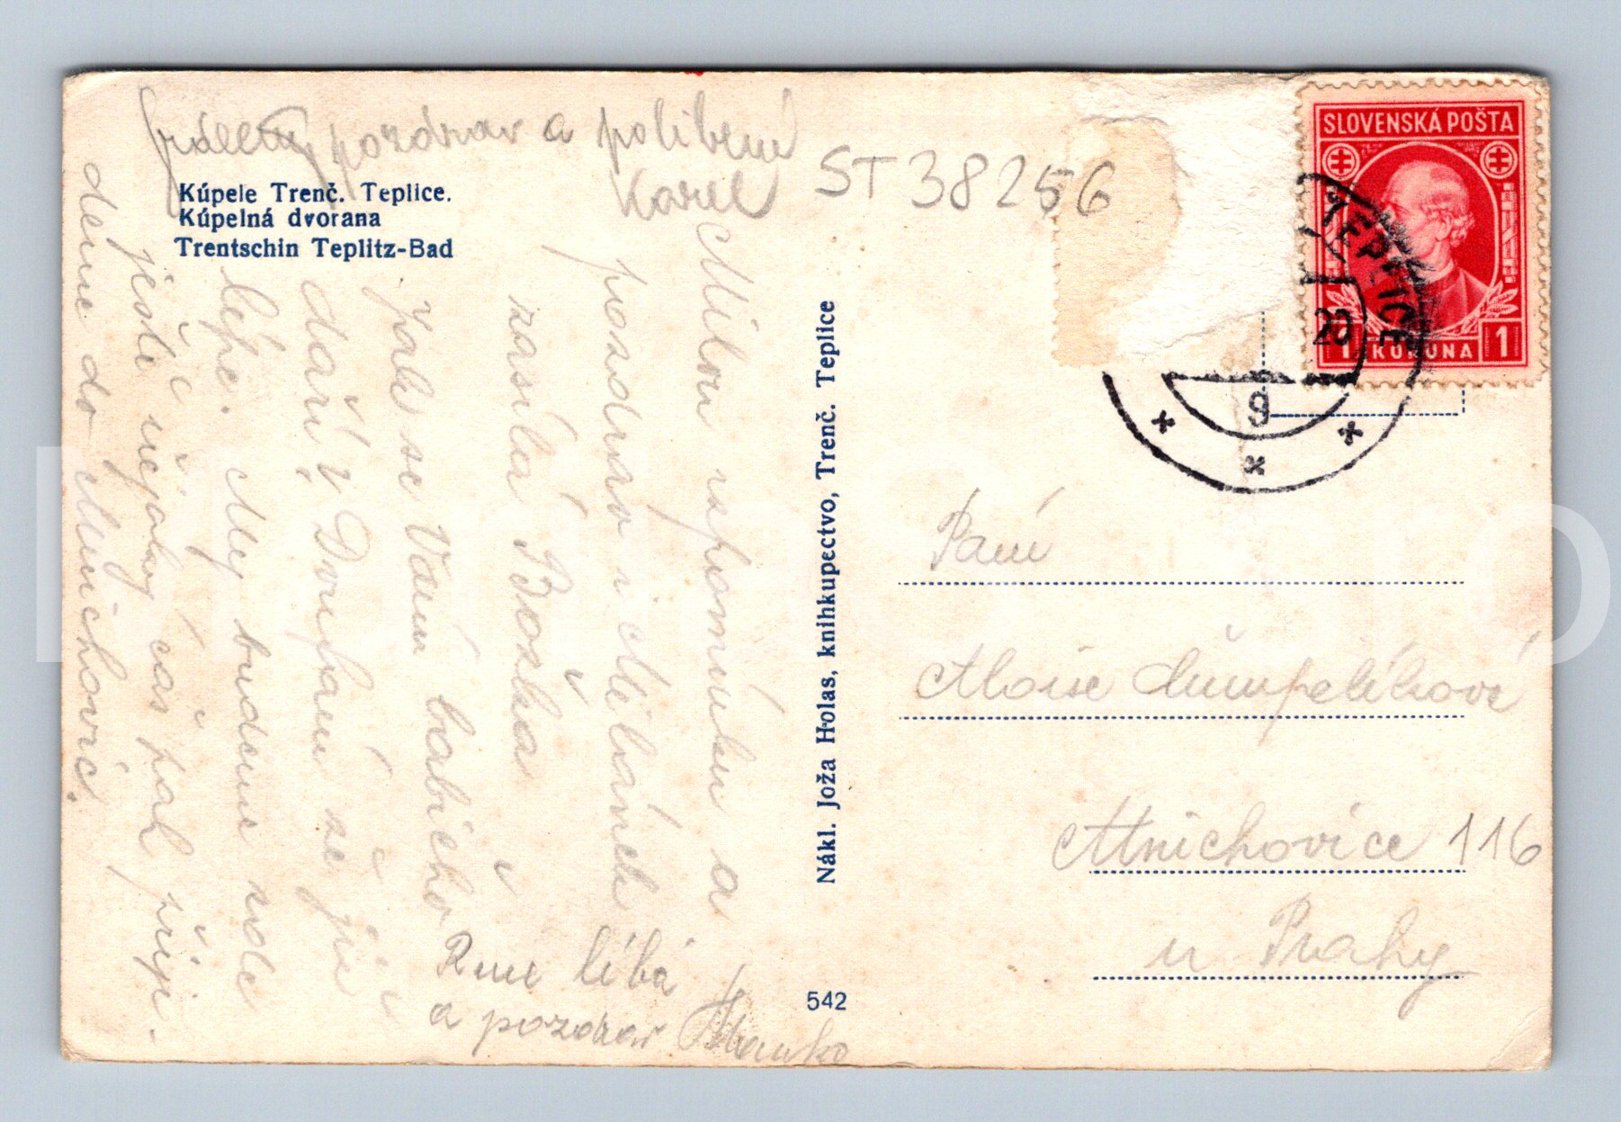 Srdečný pozdrav a políbení
Karel
Kúpele Trenč. Teplice.
Kúpelná dvorana
Trentschin Teplitz-Bad
Milou vzpomínku a
pozdrav z Míláneh
zasílá Božka
Jak se Vám babičko
daří? Doufám že již
lépe. My budeme zde
ještě nejaký čas pak přije-
deme do Mnichovic.
Ruce líbá
a pozdrav
Nákl. Joža Holas, knihkupectvo, Trenč. Teplice
542
ST 38256
SLOVENSKÁ POŠTA
1 KORUNA 1
TEPLICE
20
9
Paní
Aloise
Mnichovice 116
u Prahy